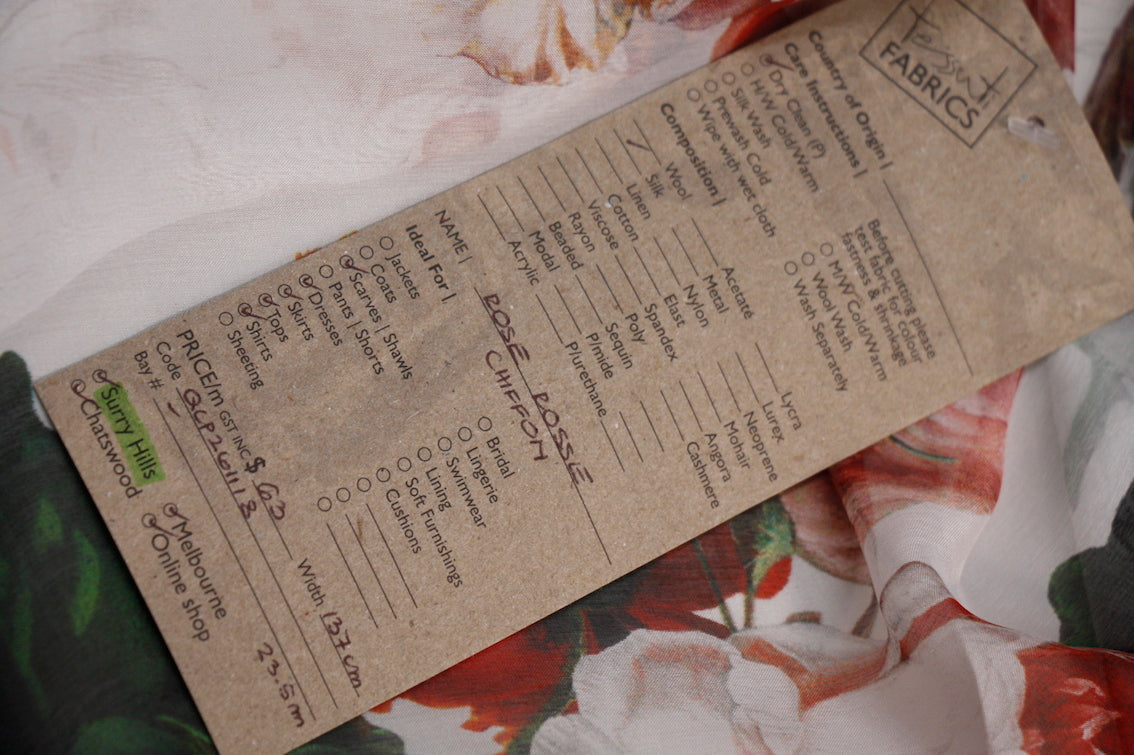 tessuti
FABRICS
Country of Origin |
Care Instructions |
Dry Clean (P)
H/W Cold/Warm
Silk Wash
Prewash Cold
Wipe with wet cloth
Before cutting please
test fabric for colour
fastness & shrinkage
M/W Cold/Warm
Wool Wash
Wash Separately
Composition |
Wool
Silk
Linen
Cotton
Viscose
Rayon
Beaded
Modal
Acrylic
Acetate
Metal
Nylon
Elast
Spandex
Poly
Sequin
P/mide
P/urethane
Lycra
Lurex
Neoprene
Mohair
Angora
Cashmere
NAME | ROSE ROSSE
CHIFFON
Ideal For |
Jackets
Coats
Scarves | Shawls
Pants | Shorts
Dresses
Skirts
Tops
Shirts
Sheeting
Bridal
Lingerie
Swimwear
Lining
Soft Furnishings
Cushions
PRICE/m GST INC $ 63 Width 137cm
Code QCP261113
Bay # - 23.5m
Surry Hills
Chatswood
Melbourne
Online shop